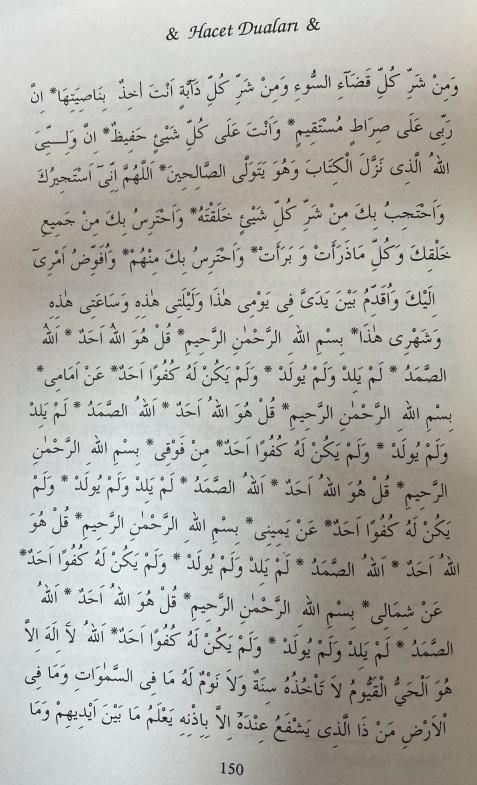 & Hacet Duaları &
وَمِنْ شَرِّ كُلِّ قَضَآءِ السُّوءِ وَمِنْ شَرِّ كُلِّ دَآبَّةٍ اَنْتَ اٰخِذٌ بِنَاصِيَتِهَا* اِنَّ
رَبِّى عَلَى صِرَاطٍ مُسْتَقِيمٍ* وَاَنْتَ عَلَى كُلِّ شَيْئٍ حَفِيظٌ* اِنَّ وَلِـيِّىَ
اللهُ الَّذِى نَزَّلَ الْكِتَابَ وَهُوَ يَتَوَلَّى الصَّالِحِينَ* اَللَّهُمَّ اِنِّىٓ اَسْتَجِيرُكَ
وَاَحْتَجِبُ بِكَ مِنْ شَرِّ كُلِّ شَيْئٍ خَلَقْتَهُ* وَاَحْتَرِسُ بِكَ مِنْ جَمِيعِ
خَلْقِكَ وَكُلِّ مَاذَرَأْتَ وَ بَرَأْتَ* وَاَحْتَرِسُ بِكَ مِنْهُمْ* وَاُفَوِّضُ اَمْرِىٓ
اِلَيْكَ وَاُقَدِّمُ بَيْنَ يَدَىَّ فِى يَوْمِى هٰذَا وَلَيْلَتِى هٰذِهِ وَسَاعَتِى هٰذِهِ
وَشَهْرِى هٰذَا* بِسْمِ اللهِ الرَّحْمٰنِ الرَّحِيمِ* قُلْ هُوَ اللهُ اَحَدٌ * اَللهُ
الصَّمَدُ * لَمْ يَلِدْ وَلَمْ يُولَدْ * وَلَمْ يَكُنْ لَهُ كُفُوًا اَحَدٌ* عَنْ اَمَامِى*
بِسْمِ اللهِ الرَّحْمٰنِ الرَّحِيمِ* قُلْ هُوَ اللهُ اَحَدٌ * اَللهُ الصَّمَدُ * لَمْ يَلِدْ
وَلَمْ يُولَدْ * وَلَمْ يَكُنْ لَهُ كُفُوًا اَحَدٌ* مِنْ فَوْقِى* بِسْمِ اللهِ الرَّحْمٰنِ
الرَّحِيمِ* قُلْ هُوَ اللهُ اَحَدٌ * اَللهُ الصَّمَدُ * لَمْ يَلِدْ وَلَمْ يُولَدْ * وَلَمْ
يَكُنْ لَهُ كُفُوًا اَحَدٌ* عَنْ يَمِينِى* بِسْمِ اللهِ الرَّحْمٰنِ الرَّحِيمِ* قُلْ هُوَ
اللهُ اَحَدٌ * اَللهُ الصَّمَدُ * لَمْ يَلِدْ وَلَمْ يُولَدْ * وَلَمْ يَكُنْ لَهُ كُفُوًا اَحَدٌ*
عَنْ شِمَالِى* بِسْمِ اللهِ الرَّحْمٰنِ الرَّحِيمِ* قُلْ هُوَ اللهُ اَحَدٌ * اَللهُ
الصَّمَدُ * لَمْ يَلِدْ وَلَمْ يُولَدْ * وَلَمْ يَكُنْ لَهُ كُفُوًا اَحَدٌ* اَللهُ لَآ اِلَهَ اِلاَّ
هُوَ اَلْحَيُّ الْقَيُّومُ لاَ تَأْخُذُهُ سِنَةٌ وَلاَ نَوْمٌ لَهُ مَا فِى السَّمٰوَاتِ وَمَا فِى
اْلاَرْضِ مَنْ ذَا الَّذِى يَشْفَعُ عِنْدَهُٓ اِلاَّ بِاِذْنِهِ يَعْلَمُ مَا بَيْنَ اَيْدِيهِمْ وَمَا
150